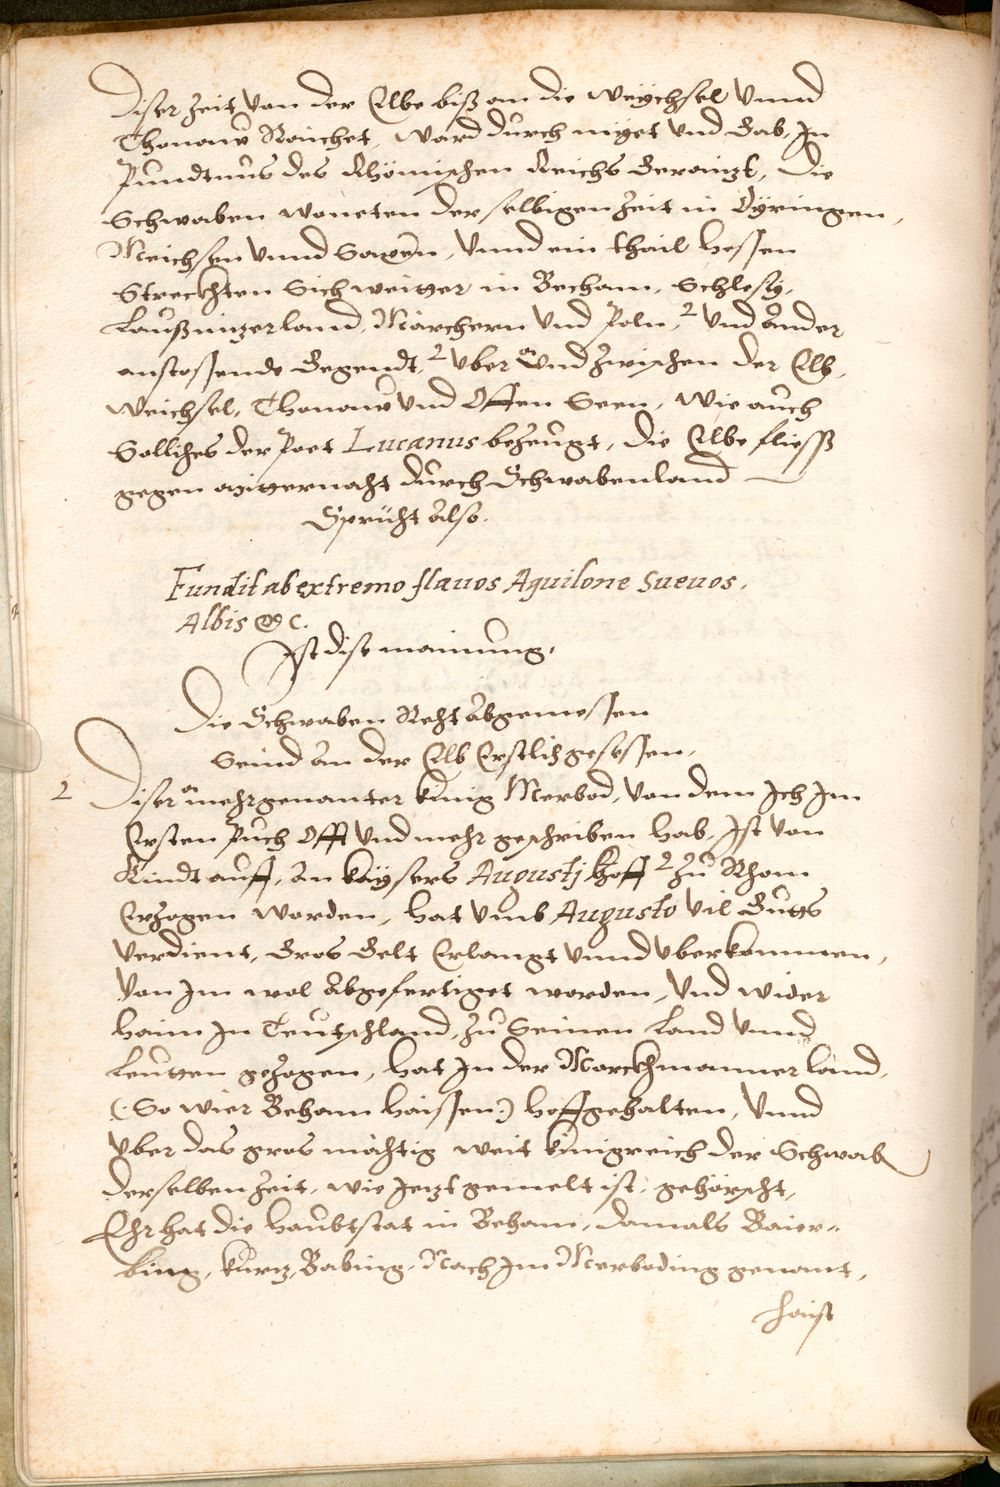 Diser Zeit von der Elbe biß an die Weychsel vnnd
Thonaw Raichet, ward durch myet vnd Gab, In
Pundtnus des Rhömischen Reichs Geraitzt, Die
Schwaben woneten der selbigen Zeit in Dÿringen,
Meichsen vnnd Saxen, vnnd ein thail hessen
Streckhten Sich weitter in Becham, Schlesÿ,
Laußnitzerland, Märchern vnd Poln, 2 vnd ander
anstossende Gegendt, 2 vber vnd Zwischen der Elb,
Weichsel, Thonaw vnd Offen Seen, Wie auch
Solliches der Poet Lucanus bezeugt, die Elbe fliesß
gegen mitternacht durch Schwabenland
Spricht also.
Fundit ab extremo flavos Aquilone Suevos.
Albis &c.
Ist dise mainung,
Die Schwaben Recht abgemessen
Seind an der Elb Erstlich gesessen,
2 Diser mehrgenanter künig Merbod, von dem Ich Im
Ersten Puch Offt vnd mehr geschriben hab, Ist von
Kindt auff, an kaÿsers Augustj Hoff 2 Zu Rhom
Erzogen worden, hat vmb Augusto vil Guts
verdient, Gros Gelt Erlangt vnnd vberkommen,
Von Im wol abgefertiget worden, vnd wider
haim In Teutschland, Zu Seinen Land vnnd
Leutten gezogen, hat In der Marckhmanner land,
(So wier Beham haissen) hoffgehalten, vnnd
vber das gros mächtig weit künigreich der Schwab
derselben Zeit, wie Jetzt gemelt ist, gehörscht,
Ehr hat die haubtstat in Beham, damals Baier-
bing, kurtz, Babing, Nach Im Merboding genant,
haist